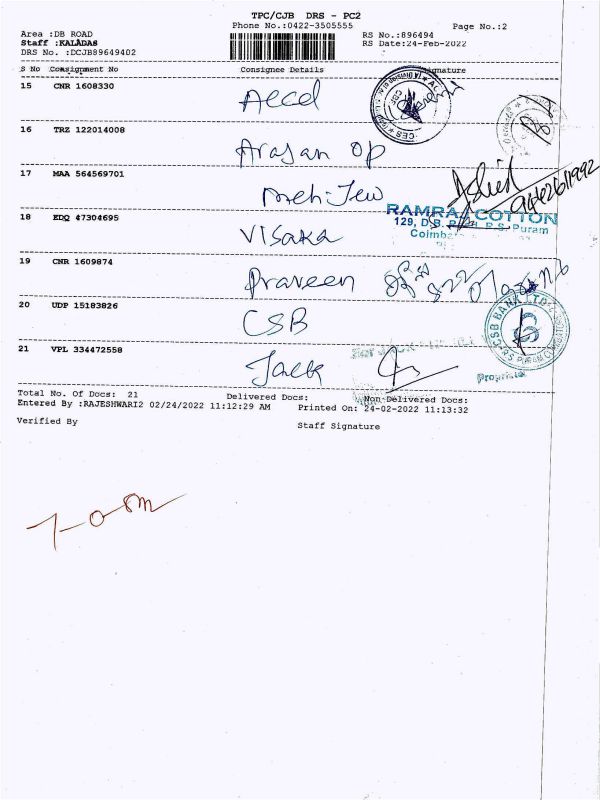 TPC/CJB DRS - PC2
Phone No.:0422-3505555
Page No.:2
Area :DB ROAD
RS No.:896494
Staff :KALADAS
RS Date:24-Feb-2022
DRS No. :DCJB89649402
S No Consignment No Consignee Details Signature
15 CNR 1608330
16 TRZ 122014008
Arajan op
17 MAA 564569701
Meh-Jew
RAMRAJ COTTON
129, D.B. R.S. Puram
18 EDQ 47304695
Visaka
19 CNR 1609874
Praveen
20 UDP 15183826
CSB
CSB BANK LTD
21 VPL 334472558
Jack
Proprietor
Total No. Of Docs: 21 Delivered Docs: Non-Delivered Docs:
Entered By :RAJESHWARI2 02/24/2022 11:12:29 AM Printed On: 24-02-2022 11:13:32
Verified By
Staff Signature